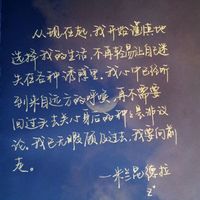 从现在起，我开始谨慎地
选择我的生活，不再轻易让自己迷
失在各种诱惑里。我心中已经听
到来自远方的呼唤，再不需要
回过头去关心身后的种种是非议
论。我已无暇顾及过去，我要向前
走。
——米兰昆德拉